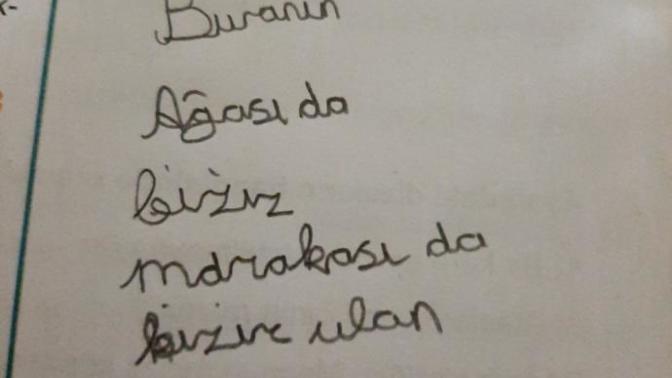 Buranın
Ağası da
biziz
marakası da
biziz ulan